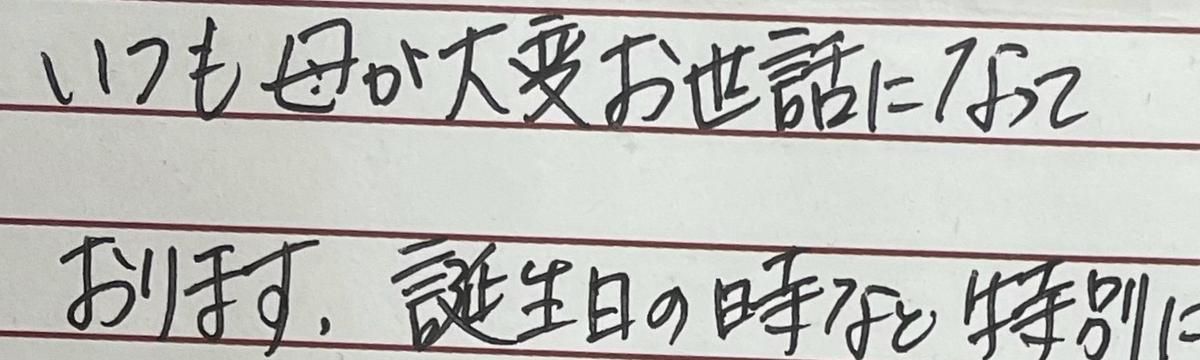 いつも母が大変お世話になって
おります。誕生日の時など特別に